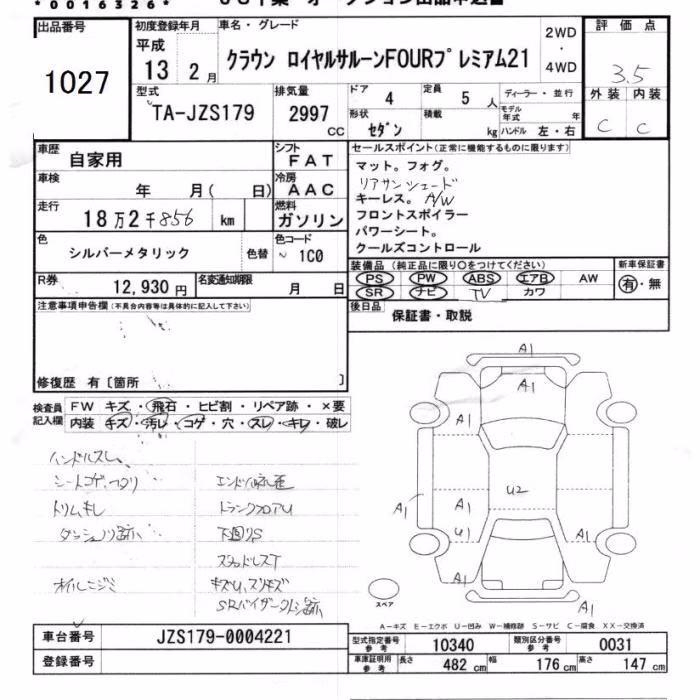 *0016326*
出品番号
1027
初度登録年月
平成
13 2月
車名・グレード
クラウン ロイヤルサルーンFOURプレミアム21
2WD
・
4WD
評価点
3.5
外装 内装
C C
型式
TA-JZS179
排気量
2997
cc
ドア 4
定員 5人
ディーラー・並行
形状 セダン
積載 kg
モデル年式 年
ハンドル 左・右
車歴 自家用
シフト FAT
車検 年 月( 日)
冷房 AAC
走行 18万2千856 km
燃料 ガソリン
色 シルバーメタリック
色替
色コード 1C0
R券 12,930円
名変通知期限 月 日
セールスポイント(正常に機能するものに限ります)
マット。フォグ。
リアサンシェード
キーレス。A/W
フロントスポイラー
パワーシート。
クールズコントロール
装備品(純正品に限り○をつけてください)
PS PW ABS エアB AW
SR ナビ TV カワ
新車保証書
有・無
後日品
保証書・取説
注意事項申告欄(不具合内容等は具体的に記入して下さい)
修復歴 有〔箇所 〕
検査員記入欄
FW キズ・飛石・ヒビ割・リペア跡・×要
内装 キズ・汚レ・コゲ・穴・スレ・キレ・破レ
ハンドルスレ
シートコゲ、
トリムキレ
ダッシュノリ跡
オイルニジミ
トランクフロアU
下廻りS
スタッドレスT
キズU、スリキズ
SRバイザー
A1
A1
A1
A1
A1
U1
U2
A1
A1
A1
スペア
A-キズ E-エクボ U-凹み W-補修跡 S-サビ C-腐食 XX-交換済
車台番号 JZS179-0004221
登録番号
型式指定番号 参考 10340
類別区分番号 参考 0031
車庫証明用 参考 長さ 482cm 幅 176cm 高さ 147cm